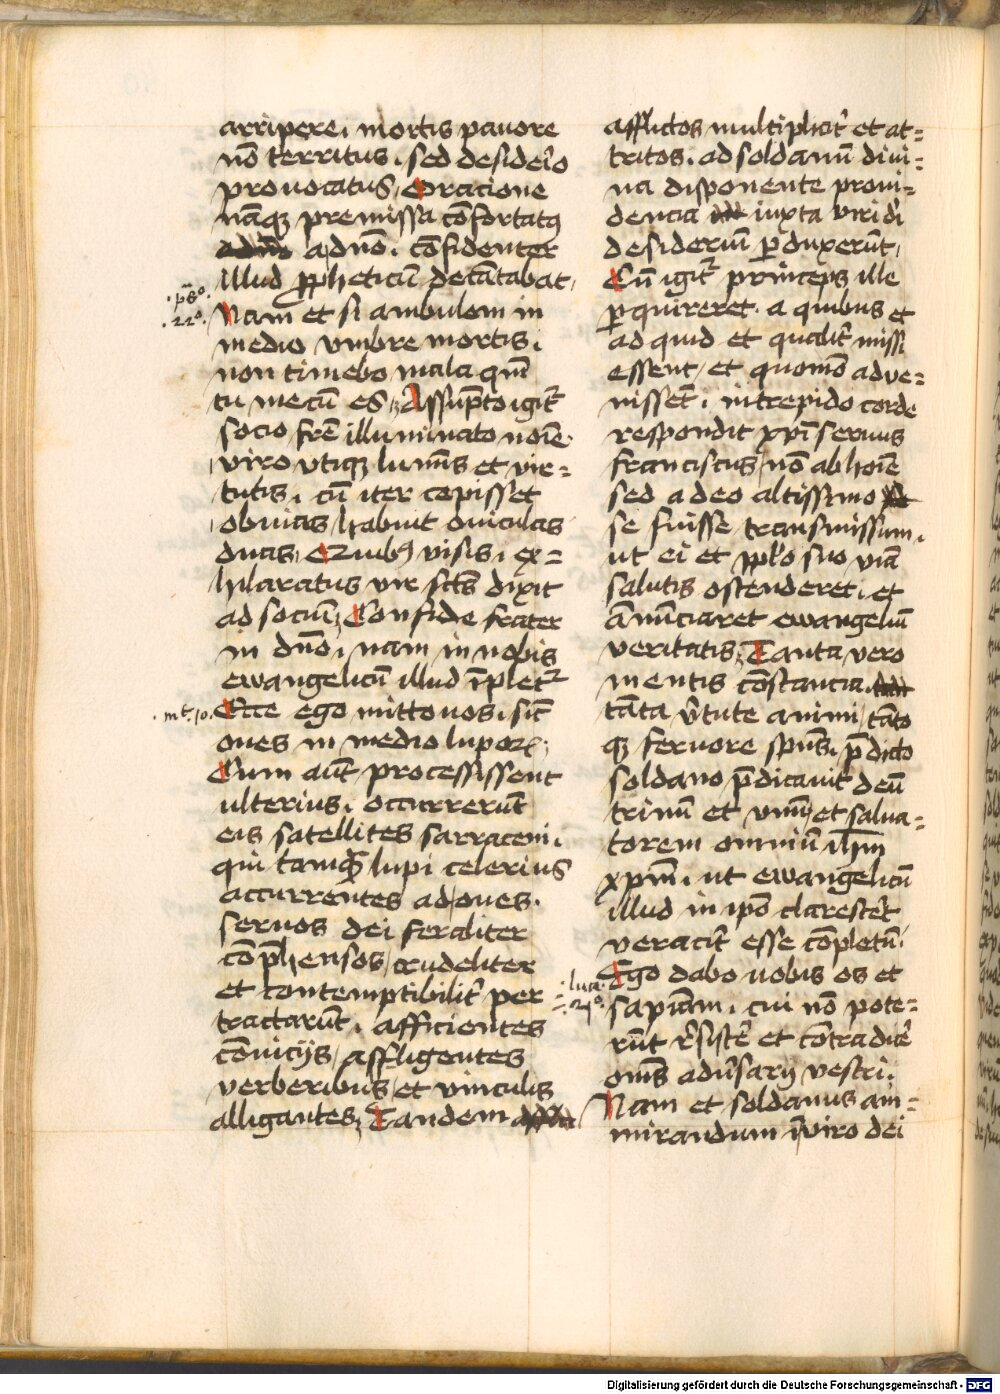 arripere, mortis pauore
nō territus, sed desideŕo
prouocatus, Oracione
nāqꝫ premissa cōfortatꝰ
a dnō, cōfidenter
illud ꝓpheticū decātabat,
.ps̄o.
.22o.
Nam et si ambulem in
medio vmbre mortis,
non timebo mala qm̄
tu mecū es, Assūpto igit᷑
socio fr̄e illuminato noīe
viro vtiqꝫ lumīs et vir=
tutis, cū iter cepisset
obuias habuit ouiculas
duas, Quibꝰ visis, ex=
hilaratus vir sct̄s dixit
ad sociū, Confide frater
in dn̄o, nam in nobis
ewangelicū illud īplet᷑
.mt. 10.
Ecce ego mitto uos, sic̄
oues in medio lupoꝝ,
Cum aūt processissent
ulterius, occurrerūt
eis satellites sarraceni,
qui tamqͣ lupi celerius
accurrentes ad oues,
seruos dei feraliter
cōp̄hensos, crudeliter
et contemptibilit᷑ per
tractarūt, afficientes
cōuicijs, affligentes
verberibus, et vinculis
alligantes, Tandem
afflictos multiplicit᷑ et at=
tritos, ad soldanū diui=
na disponente proui=
dencia iuxta viri di
desideriū ꝑduxerūt,
Cū igit᷑ princeps ille
ꝑquireret, a quibus et
ad quid et qualit᷑ missi
essent, et quomō adue=
nissēt, intrepido corde
respondit xpī seruus
franciscus, nō ab hoīe
sed a deo altissimo
se fuisse transmissum,
ut ei et pplo suo viā
salutis ostenderet, et
ānūnciaret ewangeliū
veritatis, Tanta vero
mentis cōstancia
tāta v̄tute animi, tāto
qꝫ feruore spūs, p̄dicto
soldano p̄dicauit deū
trinū et vnū, et salua=
torem omniū ih̄m
xpm̄, ut ewangelicū
illud in ip̄o claresc̄et
veracit᷑ esse cōpletū,
luce.
21o.
Ego dabo uobis os et
sapiām, cui nō pote=
rūt r̄sistē et cōtradicē
omīs adūsarij vestri,
Nam et soldanus am=
mirandum ī viro dei
Digitalisierung gefördert durch die Deutsche Forschungsgemeinschaft - DFG